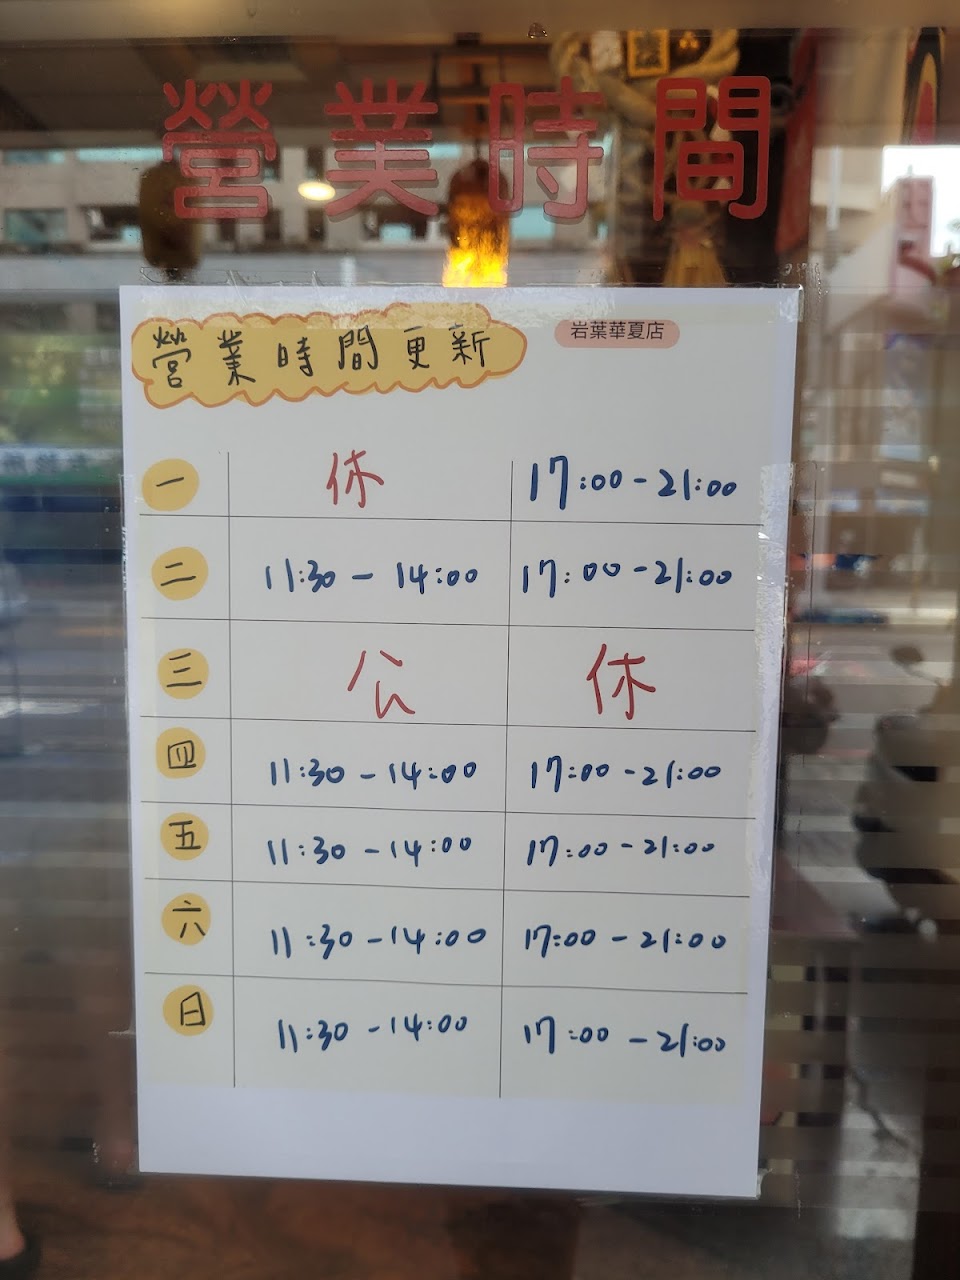 營業時間
營業時間更新
岩葉華夏店
一 休 17:00-21:00
二 11:30-14:00 17:00-21:00
三 公休
四 11:30-14:00 17:00-21:00
五 11:30-14:00 17:00-21:00
六 11:30-14:00 17:00-21:00
日 11:30-14:00 17:00-21:00